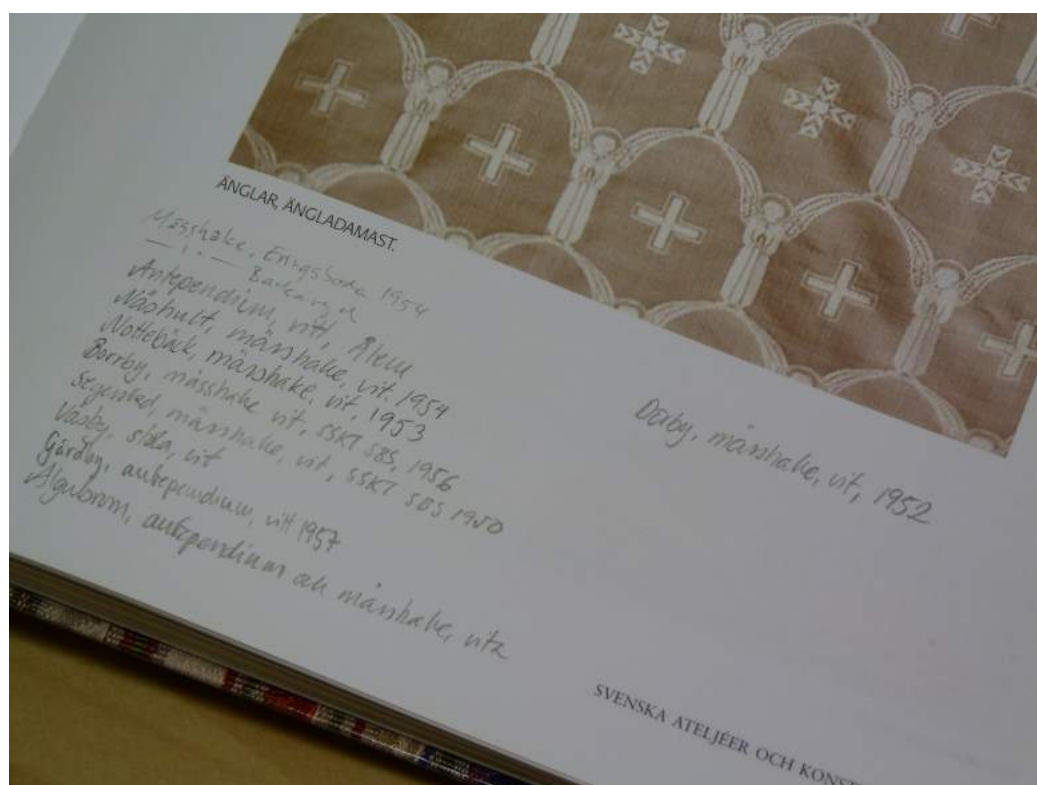 ÄNGLAR, ÄNGLADAMAST.
Mässhake, Eringsboda 1954
— " — Backaryd
Antependium, vitt, Ålem
Näshult, mässhake, vit, 1954
Nottebäck, mässhake, vit, 1953
Borrby, mässhake vit, SSKT SBS, 1956
Segerstad, mässhake, vit, SSKT SBS 1950
Väsby, stola, vit
Gårdby, antependium, vitt 1957
Algutsrum, antependium och mässhake, vita
Dörby, mässhake, vit, 1952
SVENSKA ATELJÉER OCH